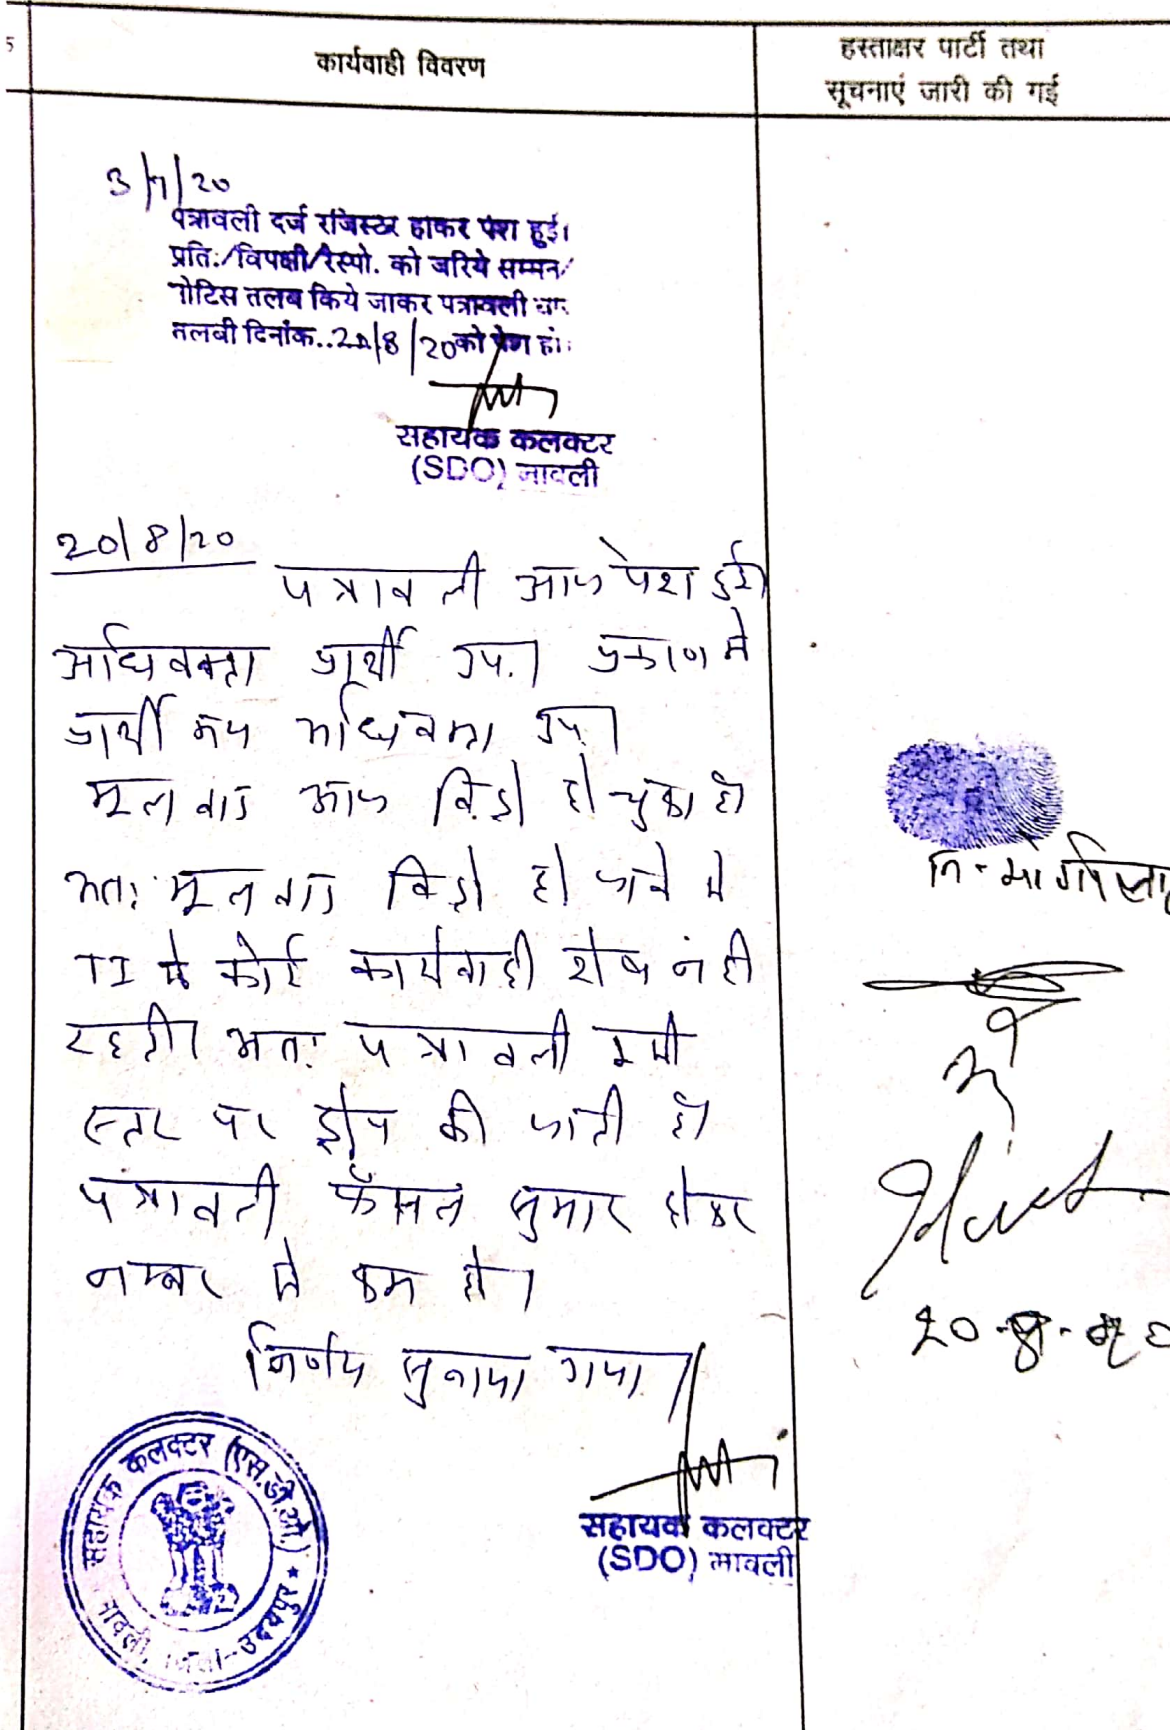 5
कार्यवाही विवरण
हस्ताक्षर पार्टी तथा
सूचनाएं जारी की गई
3/7/20
पत्रावली दर्ज रजिस्टर होकर पेश हुई।
प्रति:/विपक्षी/रेस्पो. को जरिये सम्मन/
नोटिस तलब किये जाकर पत्रावली
तलबी दिनांक..20/8/20 को पेश हो।
सहायक कलक्टर
(SDO) मावली
20/8/20
पत्रावली आज पेश हुई।
अधिवक्ता प्रार्थी उप.। प्रकरण में
प्रार्थी मय अधिवक्ता उप.।
मूल वाद आज विड्रो हो चुका है।
अतः मूल वाद विड्रो हो जाने से
TI में कोई कार्यवाही शेष नंही
रहती। अतः पत्रावली इसी
स्तर पर ड्रोप की जाती है।
पत्रावली फैसल सुमार होकर
नम्बर से कम हो।
निर्णय सुनाया गया।
सहायक कलक्टर
(SDO) मावली
सहायक कलक्टर (एस.डी.ओ.)
मावली, जिला-उदयपुर
नि-
20-8-20